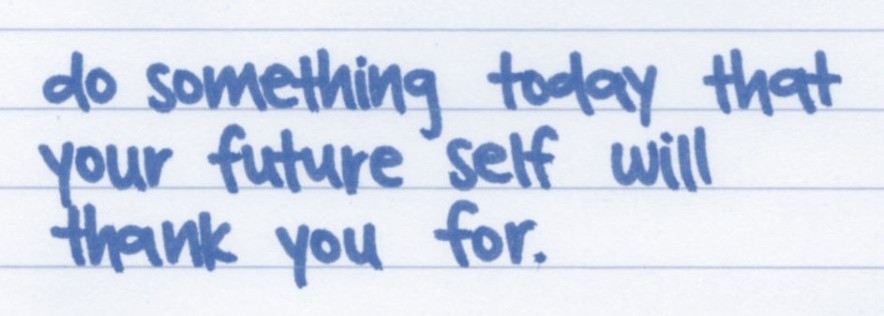 do something today that
your future self will
thank you for.